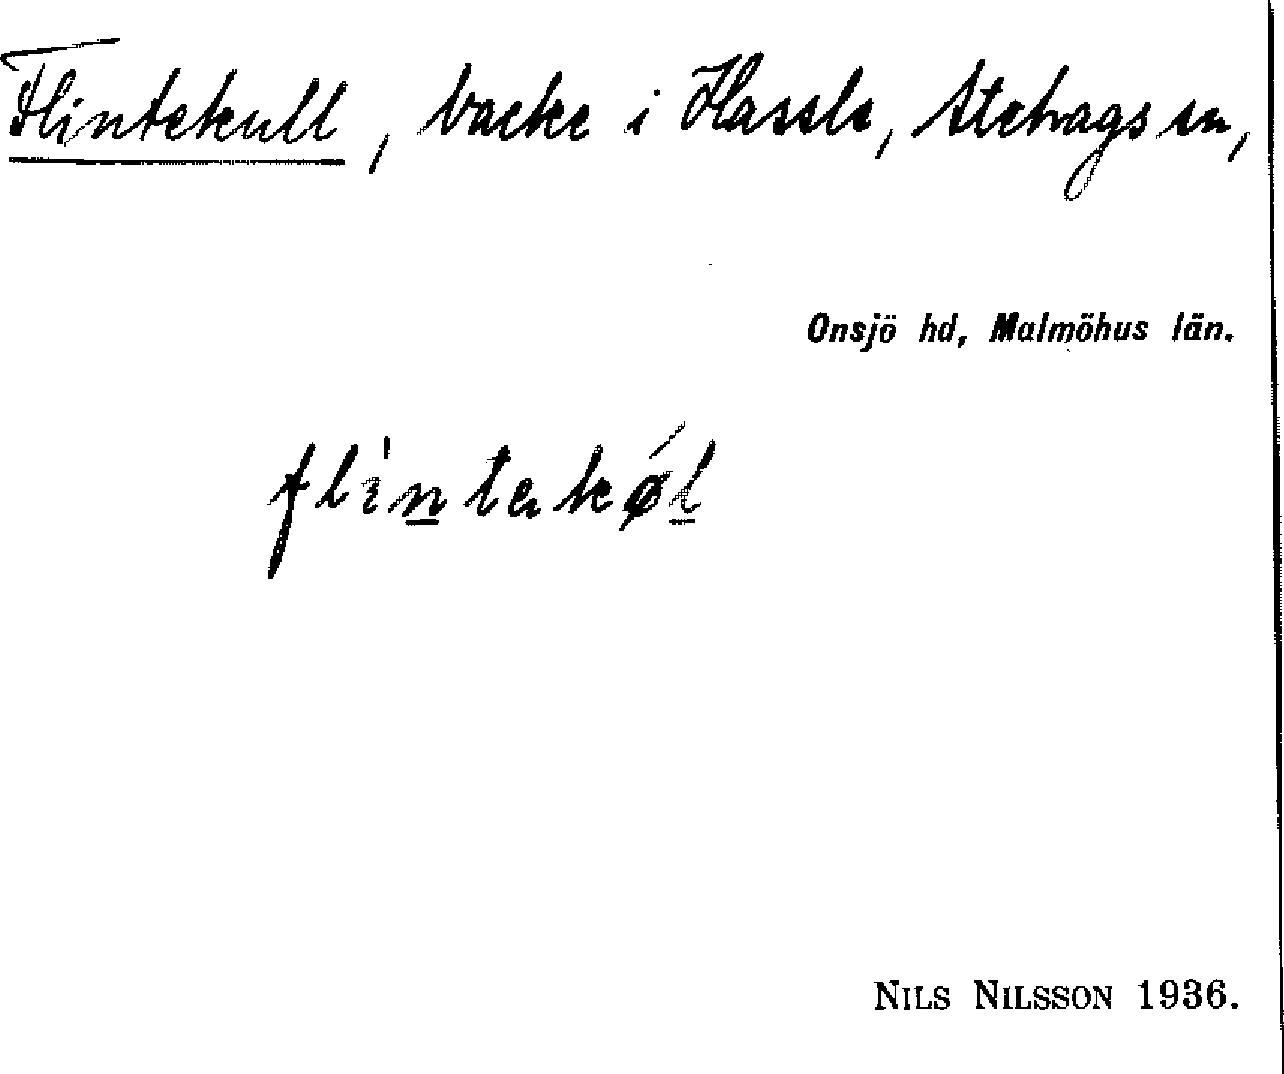 Flintekull, backe i Hassle, Stehags sn,
Onsjö hd, Malmöhus län.
NILS NILSSON 1936.